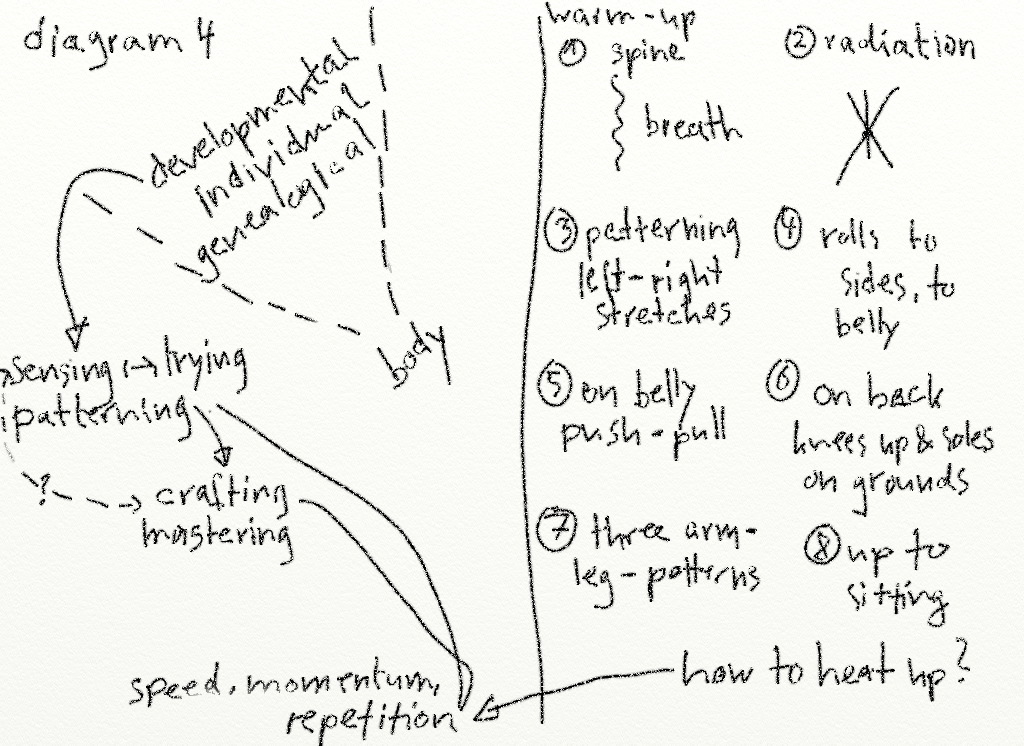 diagram 4
developmental
individual
genealogical
body
sensing ↔ trying
patterning
?
crafting
mastering
speed, momentum,
repetition
warm-up
① spine
breath
② radiation
③ patterning
left-right
stretches
④ rolls to
sides, to
belly
⑤ on belly
push-pull
⑥ on back
knees up & soles
on grounds
⑦ three arm-
leg-patterns
⑧ up to
sitting
how to heat up?